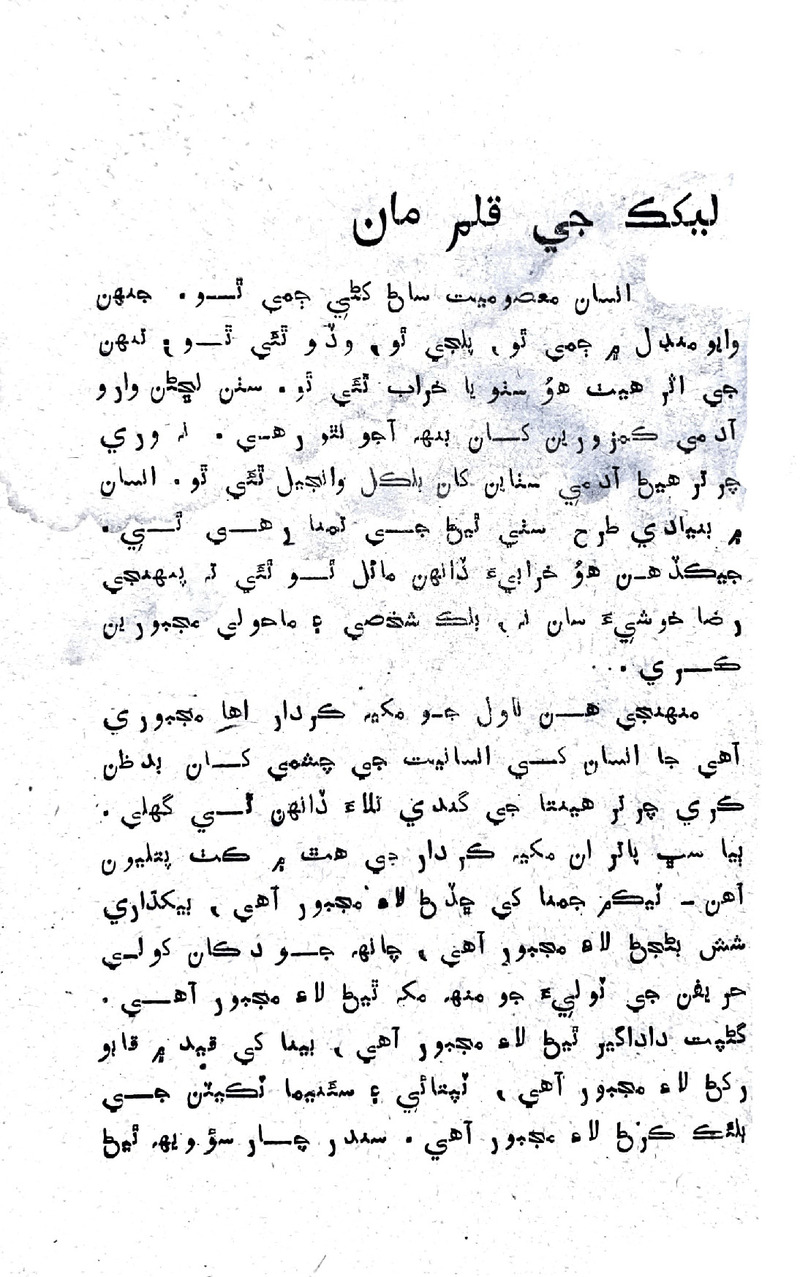 ليکڪ جي قلم مان
انسان معصوميت ساڻ کڻي ڄمي ٿــو . جنهن
وايو منڊل ۾ ڄمي ٿو ، پلجي ٿو ، وڏو ٿئي ٿــو ؛ تنهن
جي اثر هيٺ هوُ سٺو يا خراب ٿئي ٿو . سٺن لڇڻن وارو
آدمي ڪمزورين کــان بنهہ آجو نٿو رهــي . نہ وري
چرتر هيڻ آدمي سٺاين کان بلڪل وانجيل ٿئي ٿو . انسان
۾ بنيادي طرح سٺي ٿيڻ جــي تمنا رهــي ٿــي .
جيڪڏهــن هوُ خرابيءَ ڏانهن مائل ٿــو ٿئي تہ پنهنجي
رضا خوشيءَ سان نہ ، بلڪ شخصي ۽ ماحولي مجبورين
ڪــري ...
منهنجي هــن ناول جــو مکيہ ڪردار اها مجبوري
آهي جا انسان کــي انسانيت جي چشمي کــان بدظن
ڪري چرتر هينتا جي گندي تلاءَ ڏانهن ٿــي گهلي .
ٻيا سڀ پاتر ان مکيہ ڪردار جي هٿ ۾ ڪٺ پتليون
آهن ـ ٽيڪم جمنا کي ڇڏڻ لاءِ مجبور آهي ، بيکڌاري
شش بڻجڻ لاءِ مجبور آهي ، چانهہ جــو دڪان کولــي
حريفن جي ٽوليءَ جو منهہ مک ٿيڻ لاءِ مجبور آهــي .
گڻپت داداگير ٿيڻ لاءِ مجبور آهي ، بينا کي قيد ۾ قابو
رکڻ لاءِ مجبور آهي ، نپتائي ۽ سئنيما ٽڪيٽن جــي
بلئڪ ڪرڻ لاءِ مجبور آهي . سندر چــار سؤ ويهہ ٿيڻ